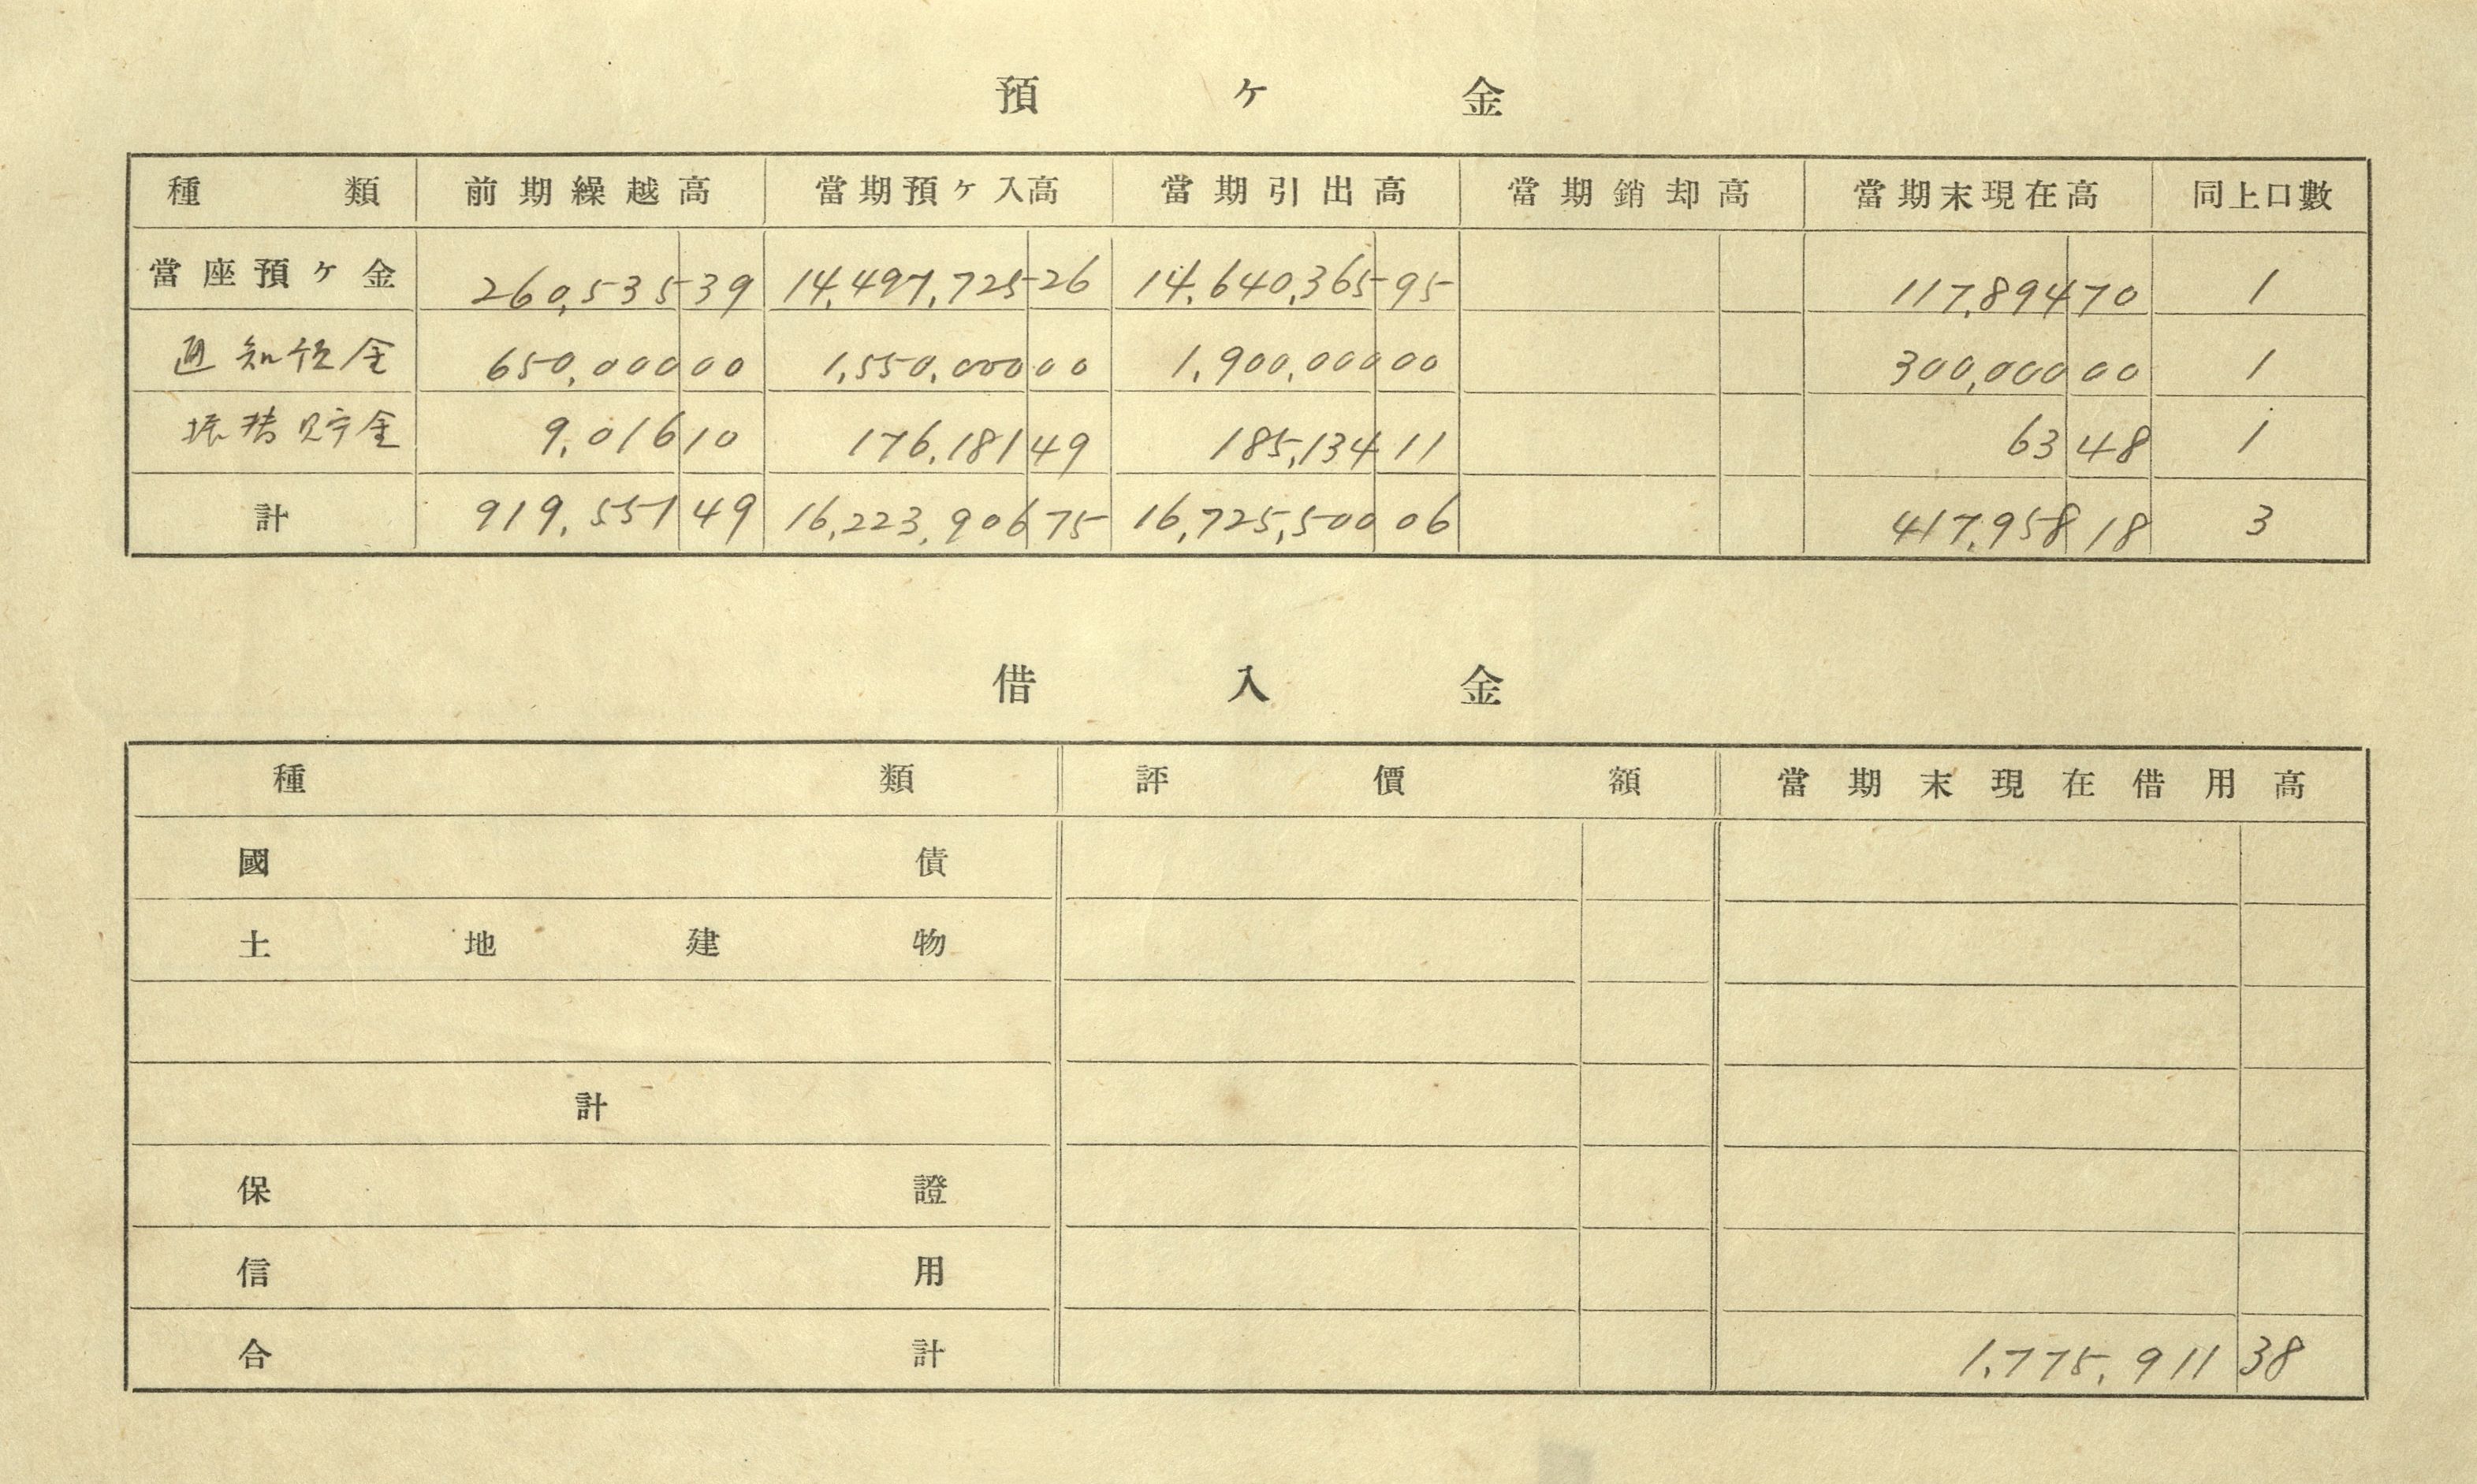 預ケ金
種類 前期繰越高 當期預ケ入高 當期引出高 當期銷却高 當期末現在高 同上口數
當座預ケ金 260,535 39 14,497,725 26 14,640,365 95 117,894 70 1
通知預金 650,000 00 1,550,000 00 1,900,000 00 300,000 00 1
振替貯金 9,016 10 176,181 49 185,134 11 63 48 1
計 919,551 49 16,223,906 75 16,725,500 06 417,958 18 3
借入金
種類 評價額 當期末現在借用高
國債
土地建物
計
保證
信用
合計 1,775,911 38